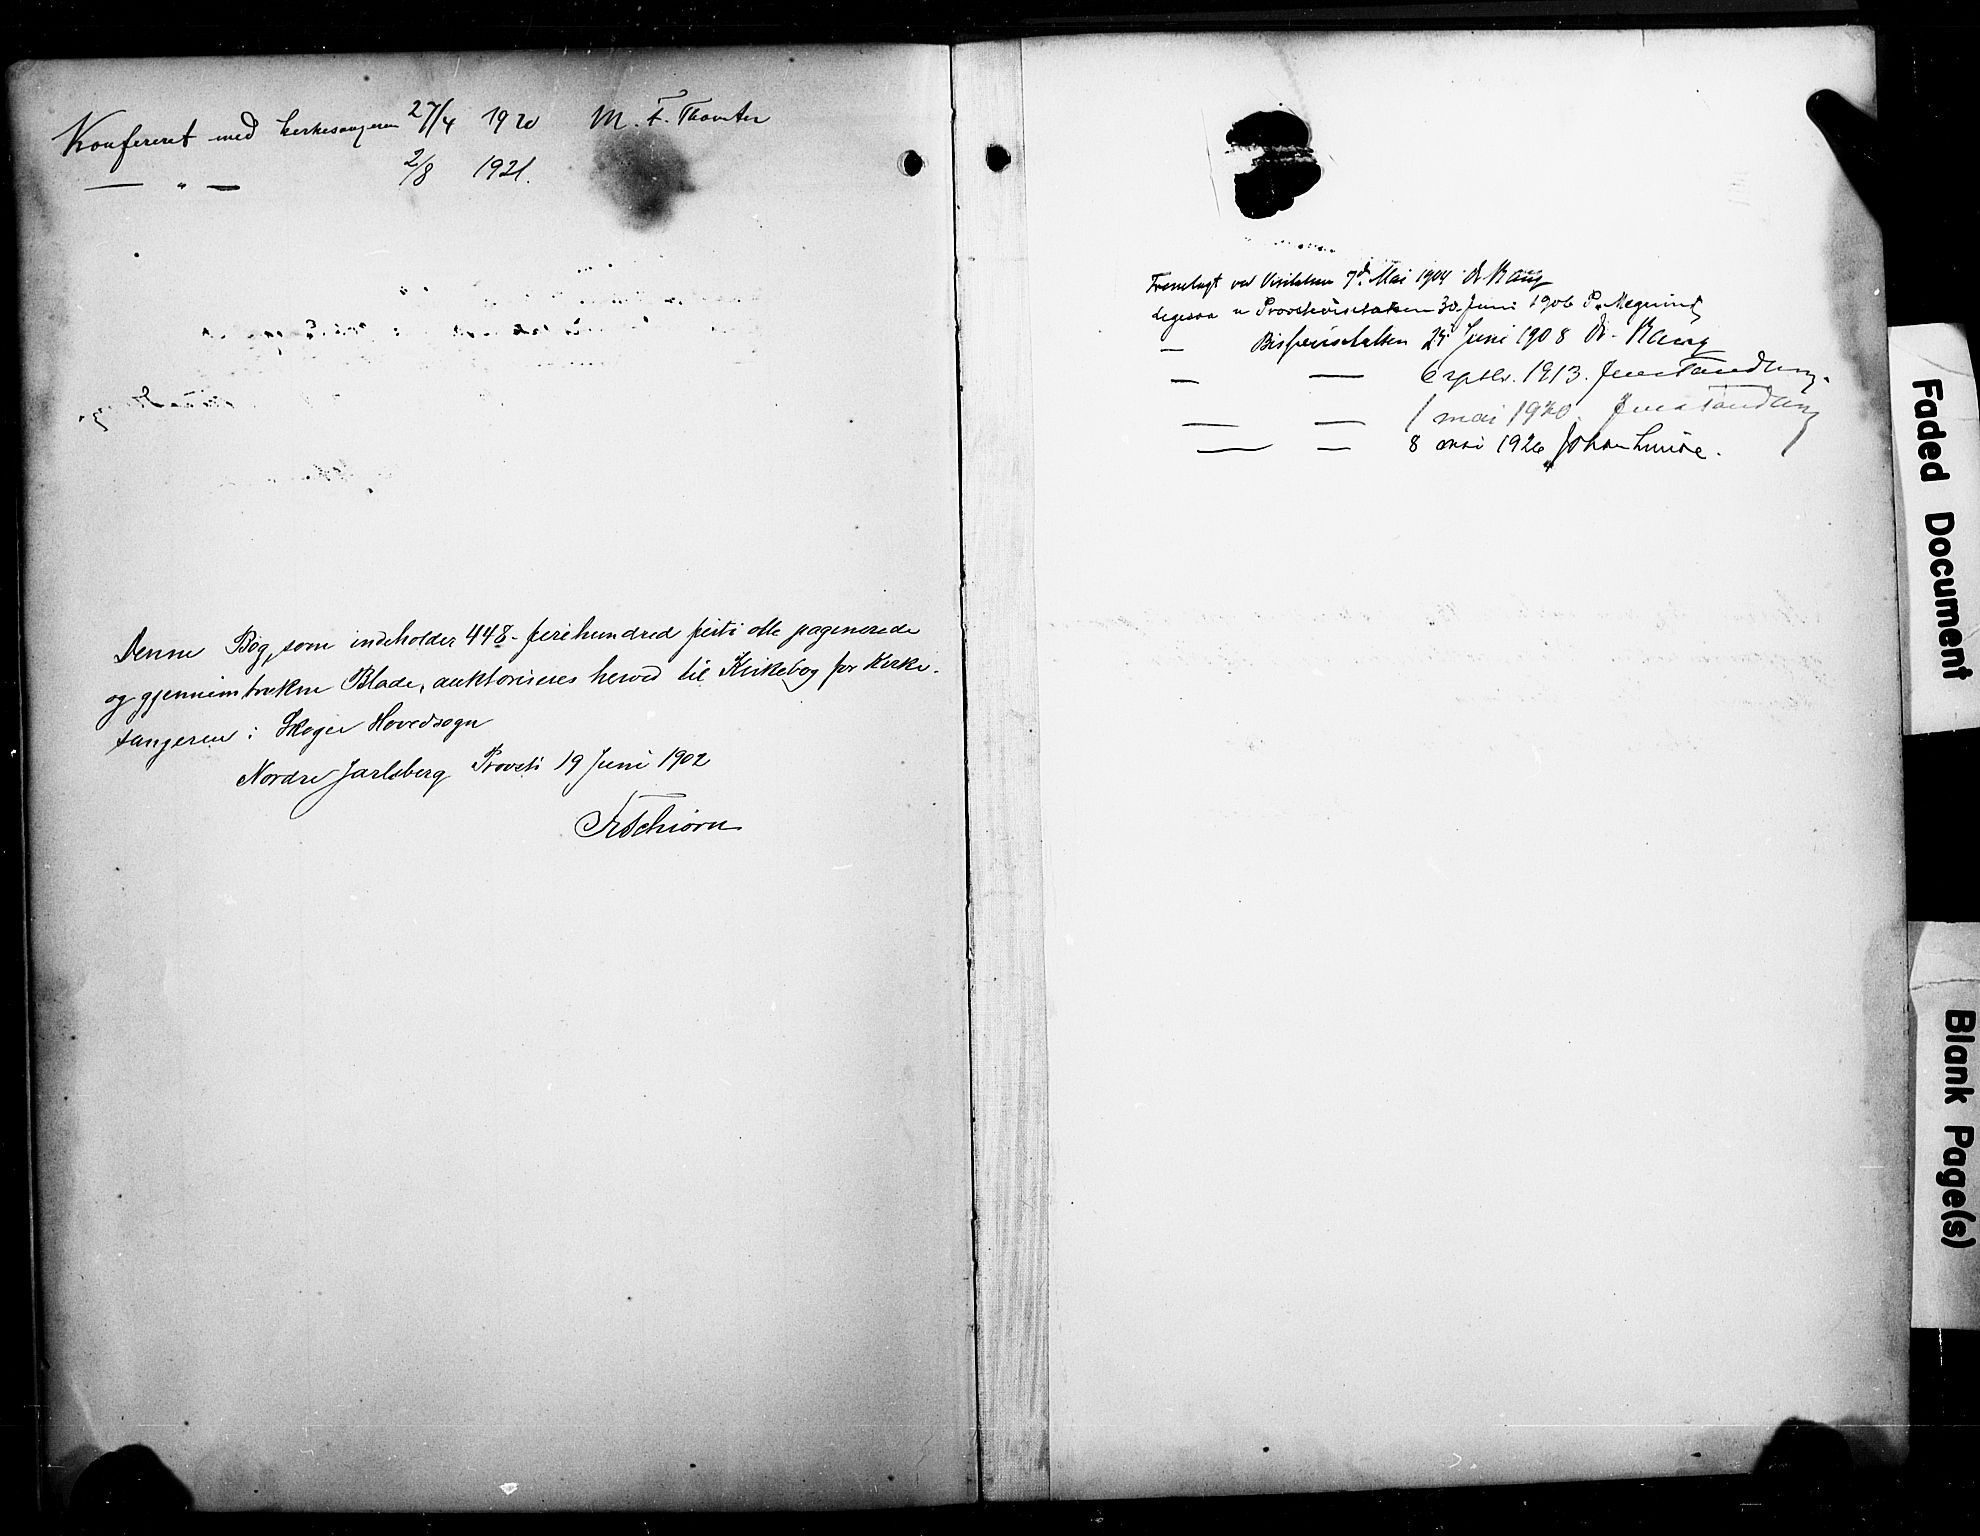 Konfereret med kirkesangeren 27/4 1920 M. F. Thomter
— " — 2/8 1921.
Denne Bog, som indeholder 448 - firehundred førti otte paginerede
og gjennemtrukne Blade, auktoriseres herved til Kirkebog for Kirke-
sangeren i Skoger Hovedsogn
Nordre Jarlsberg Provsti 19 Juni 1902
Fremlagt ved Visitatsen 7d. Mai 1904 Dr Bang
Ligesaa v Provstevisitatsen 30. Juni 1906 P. Magelssen
— Bispevisitatsen 25 Juni 1908 Dr. Bang
— — 6 septbr. 1913. Jens Tandberg.
— — 1 mai 1920. Jens Tandberg
— — 8 mai 1926 Johan Lunde.
Faded Document
Blank Page(s)